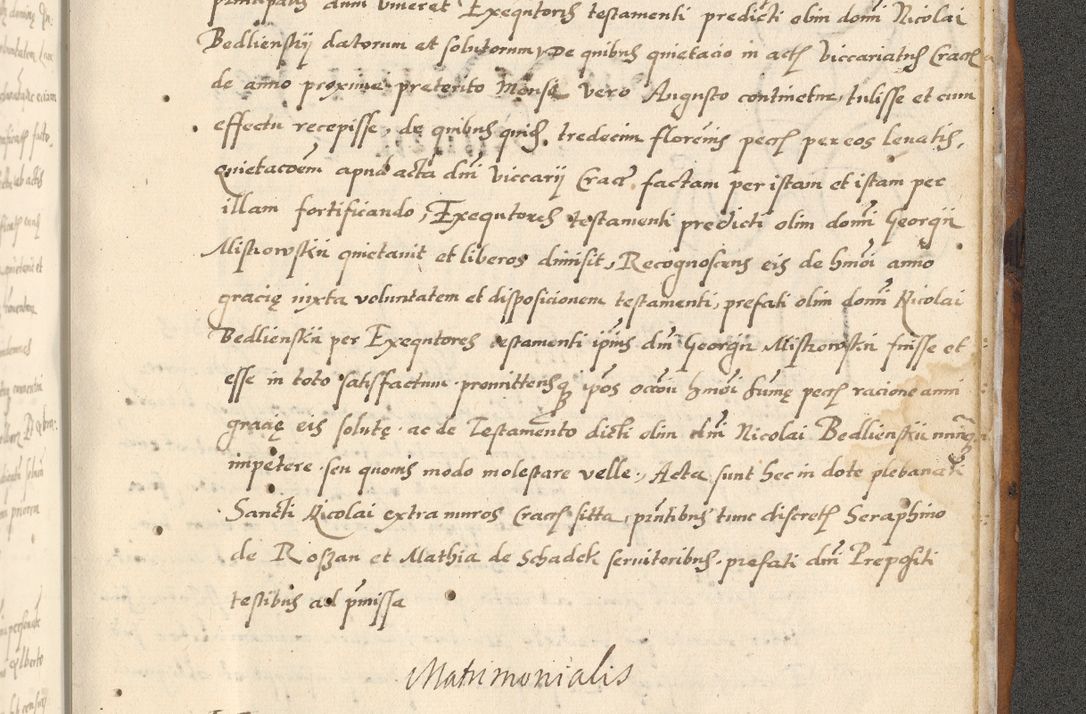 principalis dum viveret Exequtores testamenti predicti olim domi Nicolai
Bedlienskij datorum et solutorum, De quibus quietacio in actis viccariatus Crac
de anno proxime preterito Mense vero Augusto continetur, tulisse et cum
effectu recepisse, de quibus quidem tredecim florenis pecu per eos levatis,
quietacoem apud acta dni viccarij Crac factam per istam et istam per
illam fortificando, Exequtores testamenti predicti olim domi Georgii
Mistrowskii quietavit et liberos dimisit, Recognoscens eis de hmoi anno
gracię iuxta voluntatem et dispositionem testamenti, prefati olim domi Nicolai
Bedlienskii per Exequtores testamenti ipius dni Georgii Mistrowskii fuisse et
esse in toto satisfactum. promittensque ipos occoe hmoi sumę pecu racione anni
gracię eis solutę. ac de Testamento dicti olim dni Nicolai Bedlienskii nunq
impetere. seu quovis modo molestare velle., Acta sunt hec in dote plebana
Sancti Nicolai extra muros Crac sitta, pntibus tunc discretis Seraphino
de Roszan et Mathia de Schadek servitoribus. prefati dni Prepositi
testibus ad pmissa
Matrimonialis